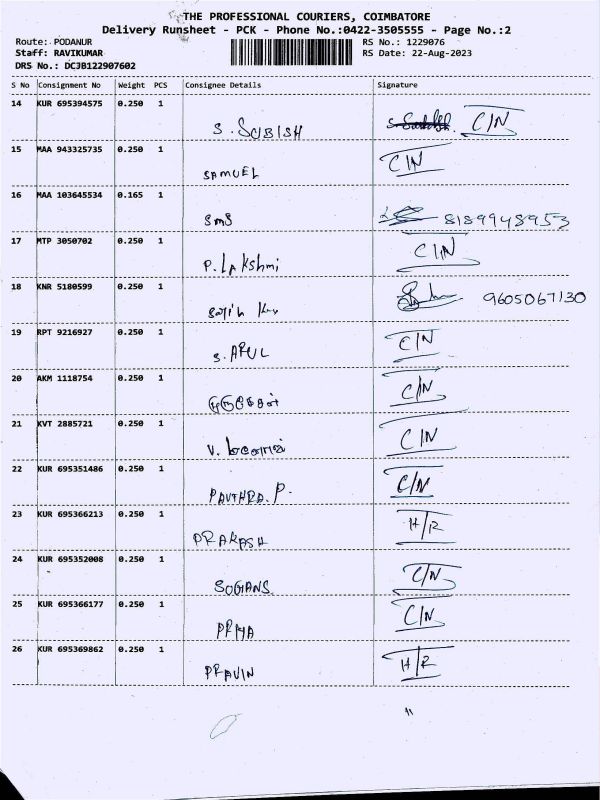 THE PROFESSIONAL COURIERS, COIMBATORE
Delivery Runsheet - PCK - Phone No.:0422-3505555 - Page No.:2
Route: PODANUR RS No.: 1229076
Staff: RAVIKUMAR RS Date: 22-Aug-2023
DRS No.: DCJB122907602
S No Consignment No Weight PCS Consignee Details Signature
14 KUR 695394575 0.250 1
S. SUBISH C/N
15 MAA 943325735 0.250 1 C/N
SAMUEL
16 MAA 103645534 0.165 1
SMS 8189948953
17 MTP 3050702 0.250 1 C/N
P. LAKSHMI
18 KNR 5180599 0.250 1
9605067130
19 RPT 9216927 0.250 1 C/N
S. ARUL
20 AKM 1118754 0.250 1 C/N
21 KVT 2885721 0.250 1 C/N
V.
22 KUR 695351486 0.250 1 C/N
PAVTHRA. P.
23 KUR 695366213 0.250 1 H/R
PRAKASH
24 KUR 695352008 0.250 1 C/N
25 KUR 695366177 0.250 1 C/N
PRIYA
26 KUR 695369862 0.250 1 H/R
PRAVIN